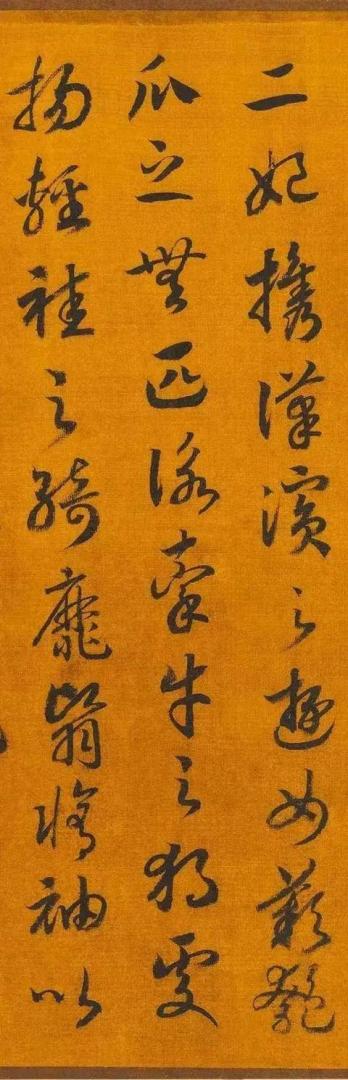 二妃攜漢濱之遊女歎匏
瓜之無匹詠牽牛之獨處
揚輕袿之綺靡翳脩袖以